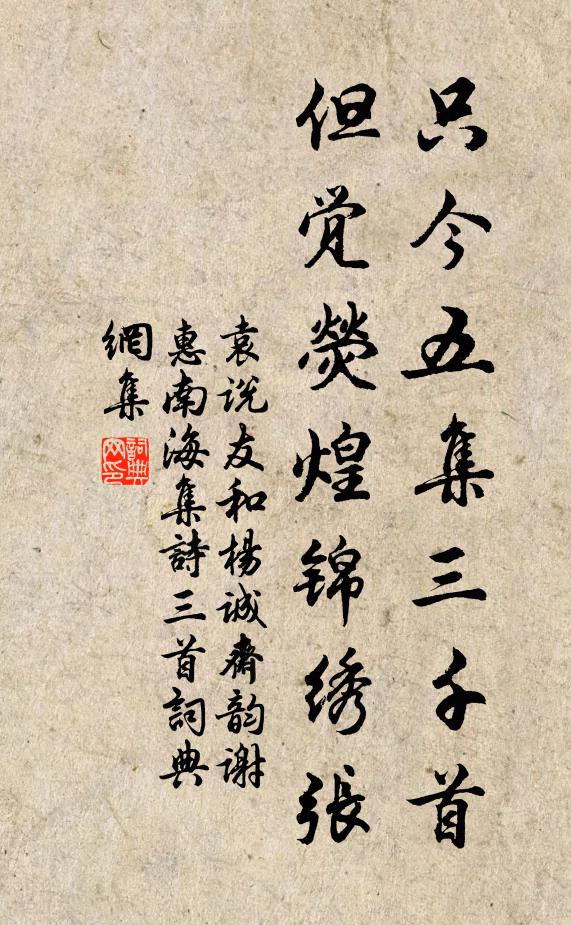 只今五集三千首
但觉荧煌锦绣張
袁说友和楊诚齋韵谢
惠南海集詩三首詞典
網集
詞典网印